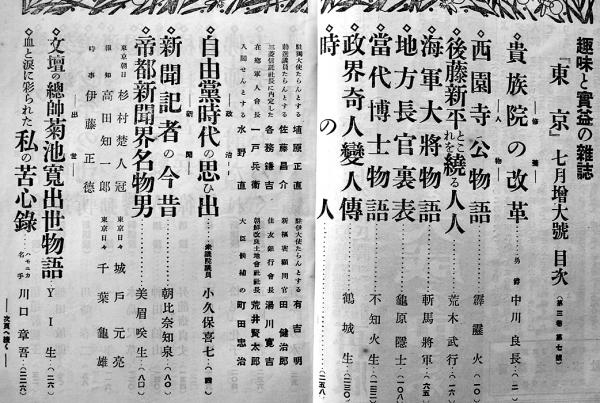 趣味と實益の雜誌
『東京』七月增大號 目次（第三卷 第七號）
――修養――
◇貴族院の改革……男爵 中川良長（二）
――人物――
◇西園寺公物語……霹靂火（一〇）
◇後藤新平とこれを繞る人人……荒木武行（一六）
◇海軍大將物語……斬馬將軍（六五）
◇地方長官裏表……龜原隱士（一〇八）
◇當代博士物語……不知火生（一二二）
◇政界奇人變人傳……鶴城生（二三〇）
◇時の人……（二五八）
駐獨大使たらんとする 埴原正直
勅選議員たらんとする 佐藤昌介
三菱信託社長に内定した 各務鎌吉
在鄕軍人會長 一戸兵衞
入閣せんとする 水野直
駐伊大使たらんとする 有吉明
新樞密顧問官 田健治郎
住友銀行會長 湯川寛吉
朝鮮改良土地會社社長 荒井賢太郎
大臣候補の 町田忠治
――政治――
◇自由黨時代の思ひ出……衆議院議員 小久保喜七（四）
――新聞――
◇新聞記者の今昔……朝比奈知泉（八〇）
◇帝都新聞界名物男……美眉唉生（八〇）
東京朝日 杉村楚人冠
報知 高田知一郎
時事 伊藤正德
東京日々 城戸元亮
東京日々 千葉龜雄
――出世――
◇文壇の總帥菊池寬出世物語……YI生（二六）
◇血と淚に彩られた私の苦心錄……ハーモニカ名手 川口章吾（二三六）
――次頁へ續く――